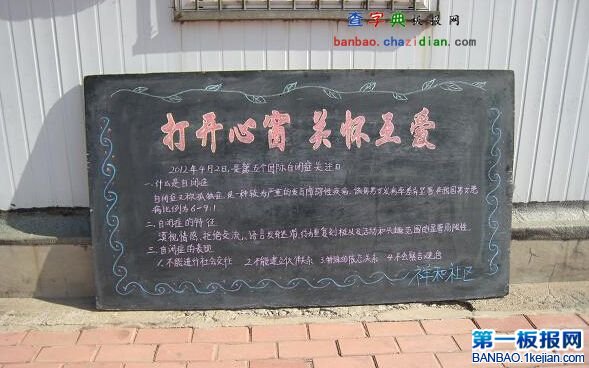 查字典板报网
banbao.chazidian.com
打开心窗 关怀互爱
2012年4月2日,是第五个国际自闭症关注日
一.什么是自闭症
自闭症又称孤独症,是一种较为严重的发育障碍性疾病,该病男女发病率差异显著,在我国男女患
病比例为6-9:1
二.自闭症的特征
漠视情感、拒绝交流、语言发育迟滞、行为重复刻板及活动和兴趣范围的显著局限性。
三.自闭症的表现
1.不能进行社会交往 2.不能建立伙伴关系 4.不会
祥和社区
第一板报网
BANBAO.1kejian.com